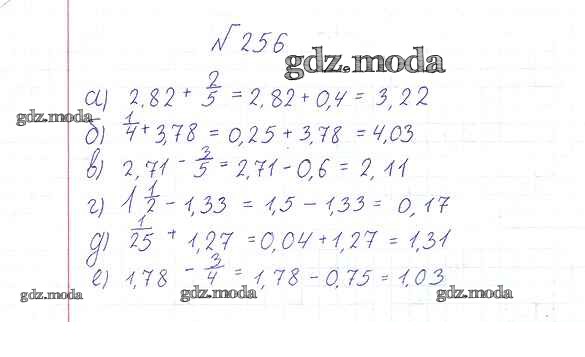 №256
gdz.moda
а) 2,82 + 2/5 = 2,82 + 0,4 = 3,22
gdz.moda
б) 1/4 + 3,78 = 0,25 + 3,78 = 4,03
в) 2,71 - 3/5 = 2,71 - 0,6 = 2,11
г) 1 1/2 - 1,33 = 1,5 - 1,33 = 0,17
д) 1/25 + 1,27 = 0,04 + 1,27 = 1,31
е) 1,78 - 3/4 = 1,78 - 0,75 = 1,03
gdz.moda gdz.moda gdz.moda